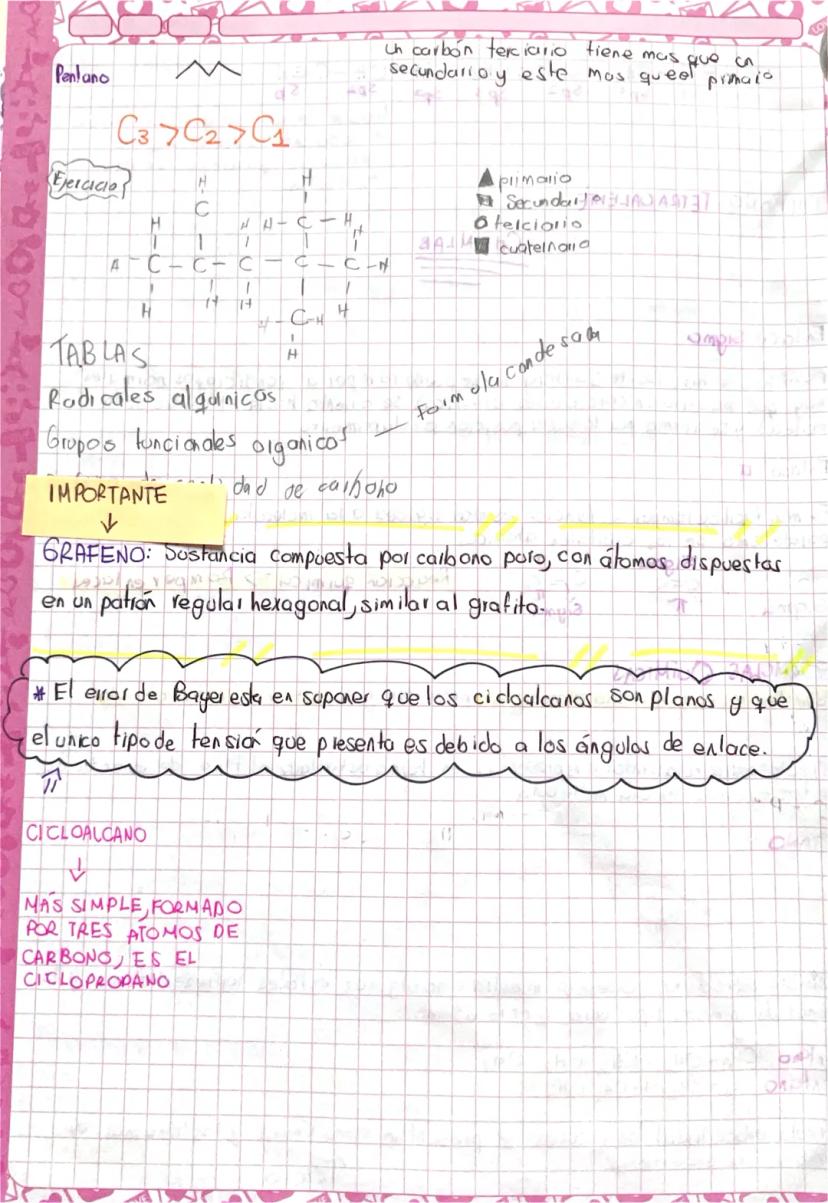 un carbón terciario tiene mas que un
secundario y este mas que el primario
Pentano
C3 > C2 > C1
Ejercicio
H H
C
H H H - C - H H
H - C - C - C - C - C - H
H H H H - C - H H
H
primario
secundario
terciario
cuaternario
TABLAS
Radicales alquinicos
Grupos funcionales organicos — Formula condesada
dad de carbono
IMPORTANTE
↓
GRAFENO: Sustancia compuesta por carbono puro, con átomos dispuestas
en un patrón regular hexagonal, similar al grafito.
* El error de Bayer esta en suponer que los cicloalcanos son planos y que
el unico tipo de tensión que presenta es debido a los ángulos de enlace.
CICLOALCANO
↓
MÁS SIMPLE, FORMADO
POR TRES ÁTOMOS DE
CARBONO, ES EL
CICLOPROPANO